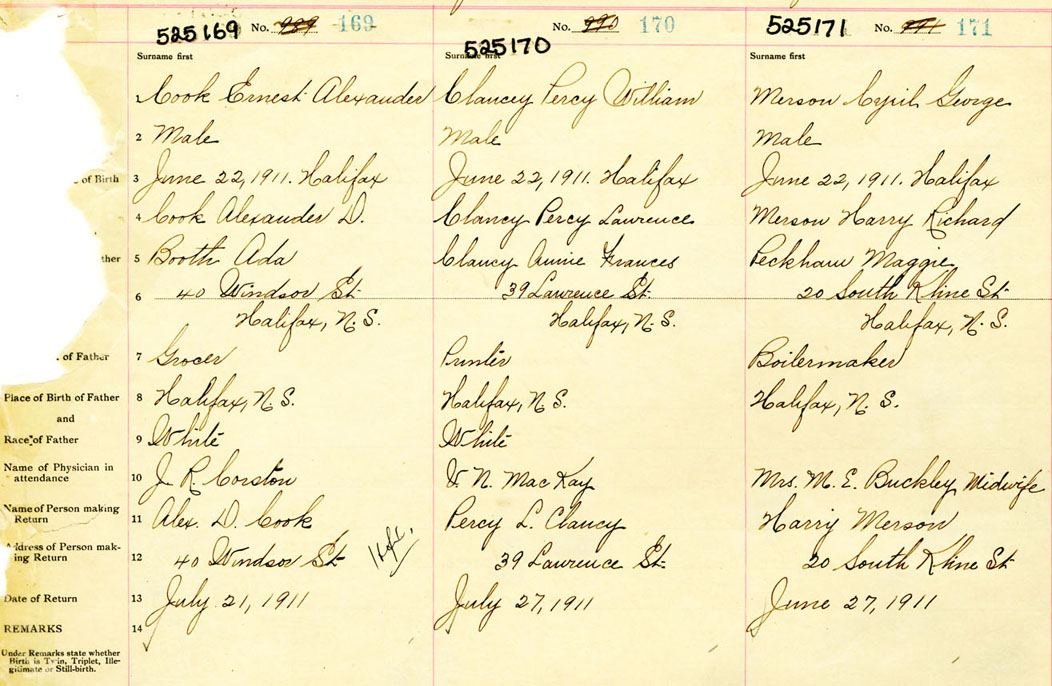 525169 No. 989 169
525170 No. 990 170
525171 No. 991 171
Surname first Surname first Surname first
1 Cook Ernest Alexander Clancey Percy William Merson Cyril George
2 Male Male Male
of Birth 3 June 22, 1911. Halifax June 22, 1911. Halifax June 22, 1911. Halifax
4 Cook Alexander D. Clancy Percy Lawrence Merson Harry Richard
ther 5 Booth Ada Clancy Annie Frances Peckham Maggie
6 40 Windsor St. 39 Lawrence St. 20 South Kline St.
Halifax, N.S. Halifax, N.S. Halifax, N.S.
of Father 7 Grocer Printer Boilermaker
Place of Birth of Father 8 Halifax, N.S. Halifax, N.S. Halifax, N.S.
and
Race of Father 9 White White
Name of Physician in
attendance 10 J. R. Corston V. N. MacKay Mrs. M. E. Buckley Midwife
Name of Person making
Return 11 Alex. D. Cook Percy L. Clancy Harry Merson
Address of Person mak-
ing Return 12 40 Windsor St. 39 Lawrence St. 20 South Kline St.
Date of Return 13 July 21, 1911 July 27, 1911 June 27, 1911
REMARKS 14
Under Remarks state whether
Birth is Twin, Triplet, Ille-
gitimate or Still-birth.